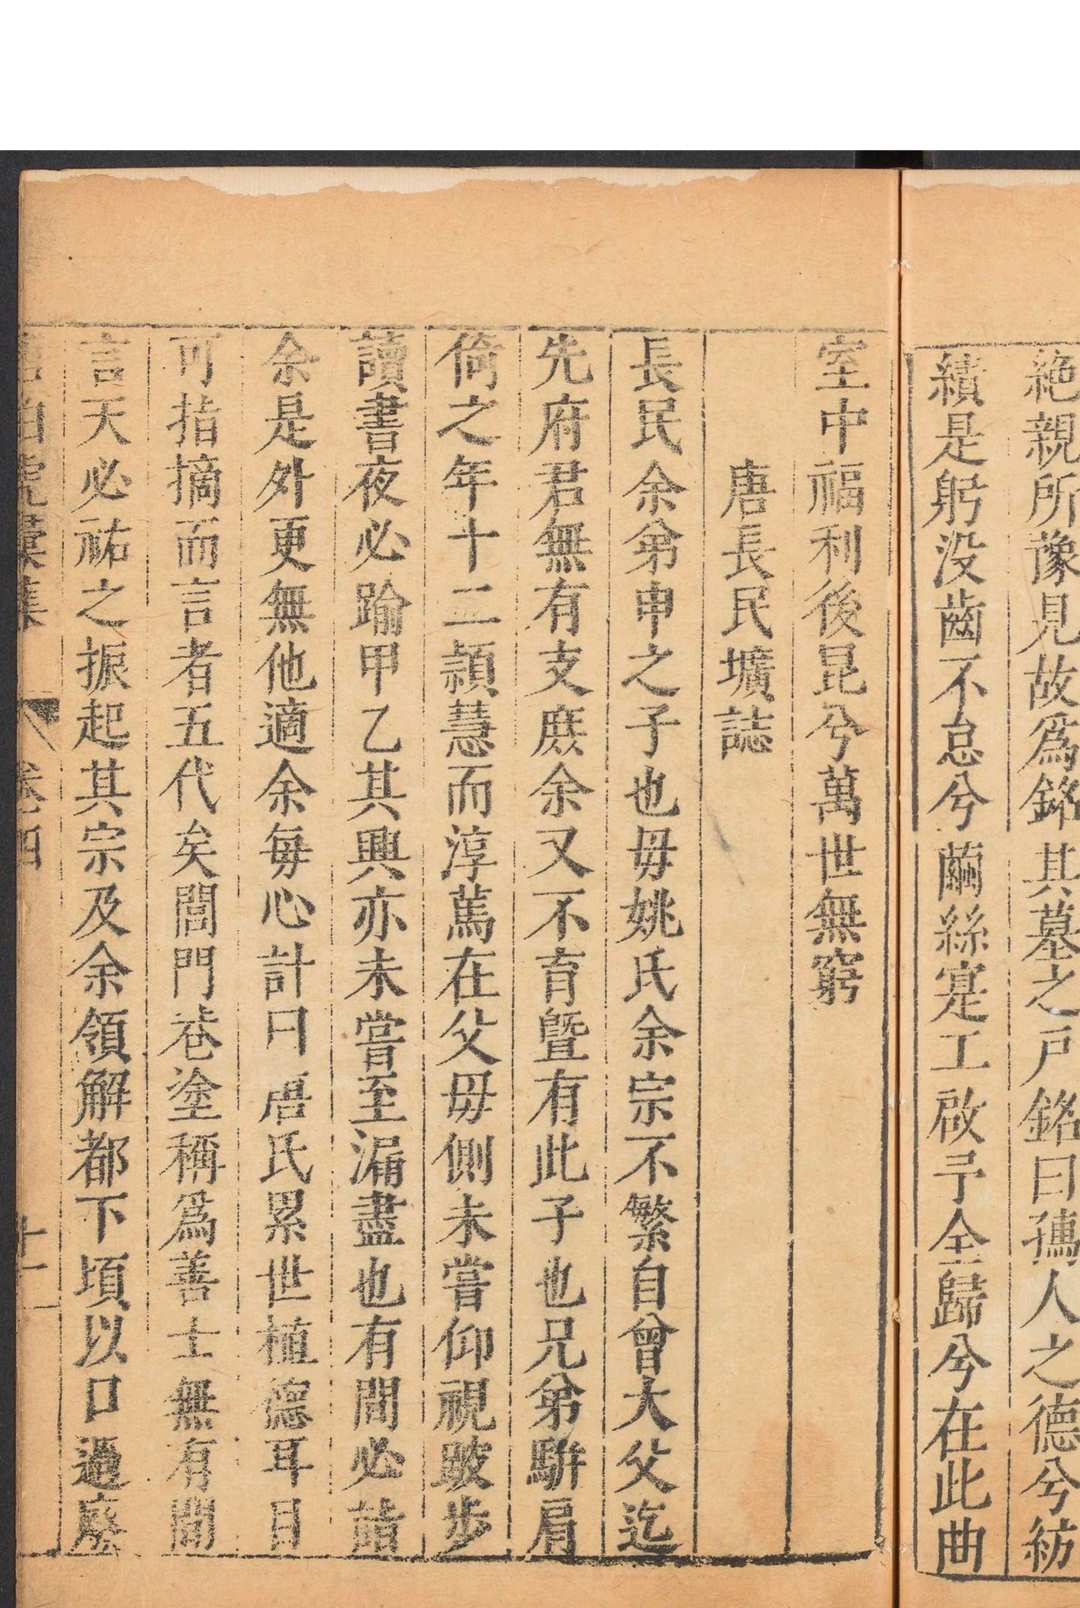 絶親所豫見故爲銘其墓之戶銘曰孀人之德兮紡
績是躬没齒不怠兮繭絲寔工啟予全歸兮在此曲
室中福利後昆兮萬世無窮
唐長民壙誌
長民余弟申之子也毋姚氏余宗不繁自曾大父迄
先府君無有支庶余又不育曁有此子也兄弟駢肩
倚之年十二頴慧而淳篤在父毋側未嘗仰視跛步
讀書夜必踰甲乙其興亦未嘗至漏盡也有間必詣
余是外更無他適余每心計曰唐氏累世植德耳目
可指摘而言者五代矣閭門巷塗稱爲善士無有間
言天必祐之振起其宗及余領解都下頃以口過廢
唐伯虎彙集 卷四 十一